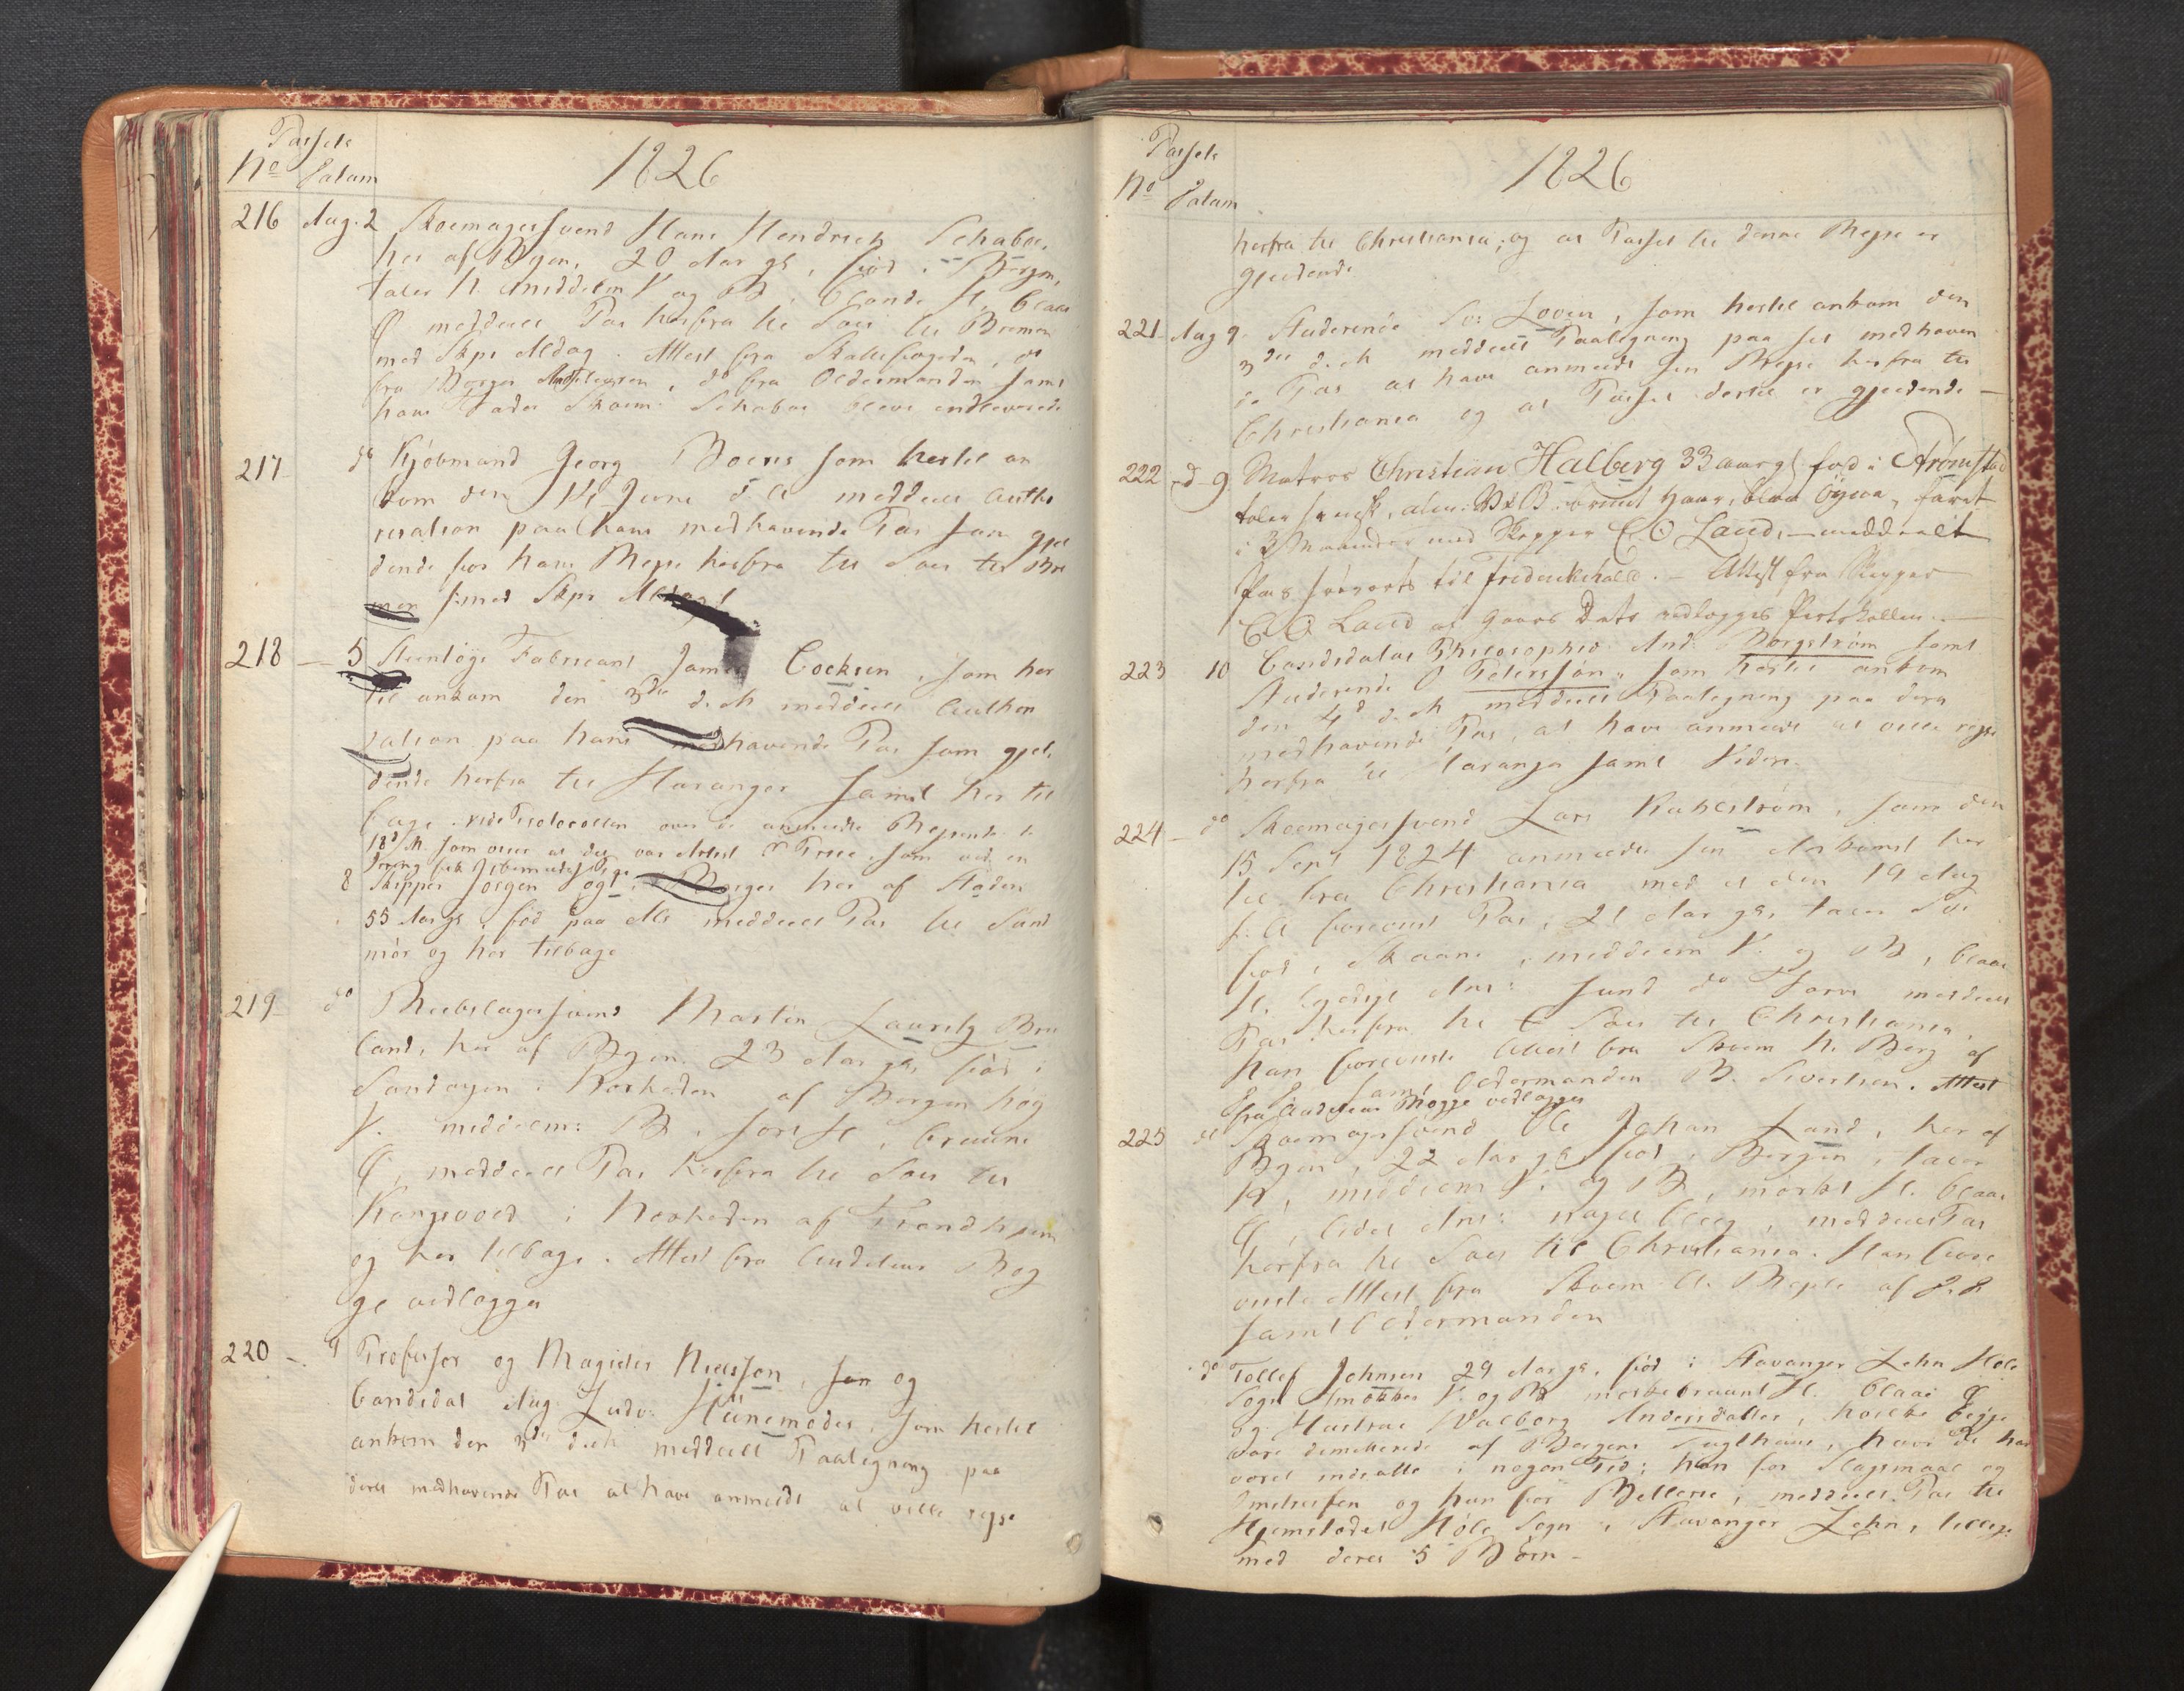 Passets
No Datum
1826
216 Aug. 2 Skoemagersvend Hans Hendrich Schabor,
her af Byen, 20 Aar gl, fød i Bergen,
taler N. middelm V og B, blonde H, blaae
Ø meddeelt Pas herfra til Søes til Bremen
med Skpr Aldag. Attest fra Skattefogden, og
fra Borger, do fra Oldermanden samt
hans Fader Skoem: Schabor bleve indleverede
217 do Kjøbmand Georg Boens som hertil an
kom den Juni d. A meddeelt Autho
risation paa hans medhavende Pas som gjel
dende for hans Reyse herfra til Søes til Bre
men med Skpr Aldag
218 5 Steentøys Fabricant James Cockson, som her
til ankom den 3die d. M meddeelt Authori
sation paa hans medhavende Pas som gjel
dende herfra til Stavanger samt her til
bage. vide Protocollen over de anmeldte Reysende
18d/M som viser at det var Attest som ved en
8 Skipper Jørgen Vogt, Borger her af Staden
55 Aar gl, fød paa Als meddeelt Pas til Sønd
mør og her tilbage
219 do Reebslagersvend Martin Lauritz Bru
land, her af Byen. 23 Aar gl, fød i
Sandvigen i Nærheden af Bergen høy
V. middelm: B, sort H, bruune
Ø, meddeelt Pas herfra til Søes til
Kongsvold i Nærheden af Trondhjem
og her tilbage. Attest fra Auditeur Rog
ge vedlagges
220 9 Professor og Magister Nilsson, son og
Candidat Aug. Ludv: Hünemoder, som hertil
ankom den 3die d. M meddeelt Paategning paa
deres medhavende Pas at have anmeldt at ville reyse
Passets
No Datum
1826
herfra til Christiania; og at Passet til denne Reyse er
gjeldende
221 Aug 9. Studerende Sv: Loven, som hertil ankom den
3die d. M meddeelt Paategning paa sit medhaven
de Pas at have anmeldt sin Reyse herfra til
Christiania og at Passet dertil er gjeldende
222 d 9 Matros Christian Halberg 33 aar gl fød i Strömstad
taler svensk, alm: V & B bruunt Haar, blaa Öyene, faret
i 3 Maaneder med Skipper C O Lund, meddeelt
Pas søeværts til Friderickshald. Attest fra Skipper
C O Lund af Gaars Dato vedlægges Protokollen
223 10 Candidatus Philosophiæ And: Borgström samt
Studerende J Petersson, som hertil ankom
den 4d d. M meddeelt Paategning paa deres
medhavende Pas, at have anmeldt at ville reyse
herfra til Stavanger samt Videre.
224 do Skoemagersvend Lars Kuhlström, som den
15 Sept 1824 anmeldte sin Ankomst her
til fra Christiania med et den 19 Aug
s. A foreviist Pas, 21 Aar gl, taler Sv:
fød i Skaane, middelm V. og B, blaae
H. Ans: Sund do Farve meddeelt
Pas herfra til Søes til Christiania,
han foreviste Attest fra Skoem N. Berg af
samt Oldermanden B. Sivertsen. Attest
fra Auditeur Rogge vedlagges
225 d Skoemagersvend Ole Johan Lund, her af
Byen, 22 Aar gl fød i Bergen, taler
N, middelm V. og B, mørkt H. blaae
Ø, lidet Ans: noget bleeg, meddeelt Pas
herfra til Søes til Christiania. Han fore
viste Attest fra Skoem
samt Oldermanden
do Tollef Johnsen 29 Aar gl, fød i Stavanger Lehn Høle
Sogn Smekker V. og B mørkebruunt H. blaae Ø
og Hustrue Walborg Andersdatter, hvilke begge
vare dimitterede af Bergens Tugthuus, hvor de har
været indsatte i nogen Tid; han for Slagsmaal og
Omstreifen og hun for Betlerie, meddeelt Pas til
Hjemstedet Høle Sogn i Stavanger Lehn, tillige
med deres 5 Børn